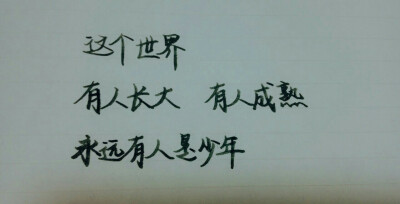 这个世界
有人长大 有人成熟
永远有人是少年